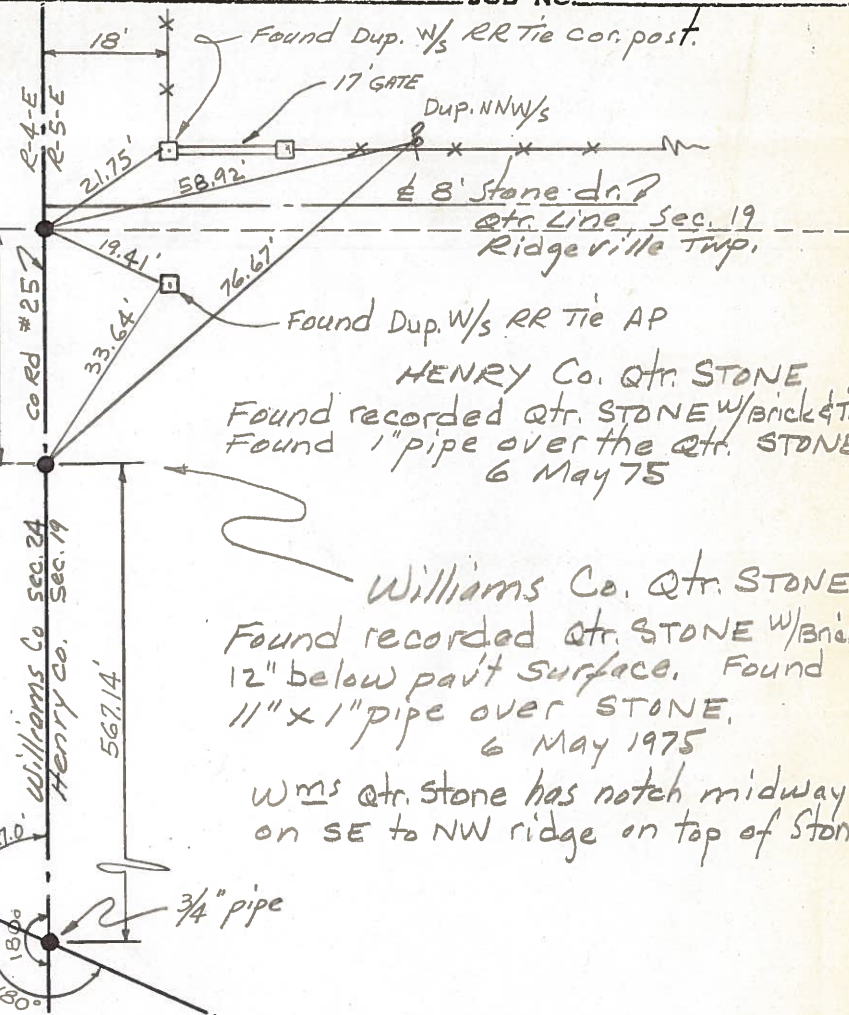 JOB NO.
18'
Found Dup. W/s RR Tie cor. post.
17' GATE
Dup. NNW/s
R-4-E
R-5-E
21.75'
58.92'
℄ 8' Stone dr.
Qtr. Line, Sec. 19
Ridgeville Twp.
19.41'
76.67'
Co Rd #25
33.64'
Found Dup. W/s RR Tie AP
HENRY Co. Qtr. STONE
Found recorded Qtr. STONE W/Brick & T
Found 1" pipe over the Qtr. STONE
6 May 75
Williams Co. Qtr. STONE
Found recorded Qtr. STONE W/Bric
12" below pav't surface. Found
11" x 1" pipe over STONE.
6 May 1975
Wms Qtr. Stone has notch midway
on SE to NW ridge on top of Ston
Williams Co Sec. 24
Henry Co. Sec. 19
567.14'
7.0'
3/4" pipe
180°
80°